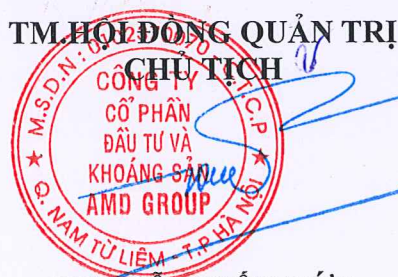 TM.HỘI ĐỒNG QUẢN TRỊ
CHỦ TỊCH
M.S.D.N:
C.T.C.P
CÔNG TY
CỔ PHẦN
ĐẦU TƯ VÀ
KHOÁNG SẢN
AMD GROUP
Q. NAM TỪ LIÊM - T.P HÀ NỘI